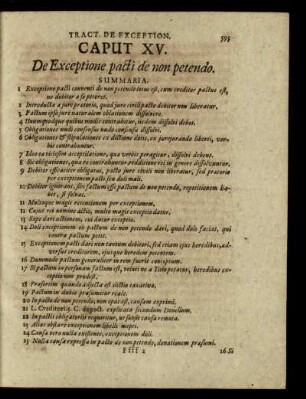 TRACT. DE EXCEPTION. 593
CAPUT XV.
De Exceptione pacti de non petendo.
SUMMARIA.
1 Exceptione pacti conventi de non petendo locus est, cum creditor pactus est,
ne debitor a se peteret.
2 Introducta a jure prætorio, quod jure civili pacto debitor non liberatur.
3 Pactum ipso jure naturalem obligationem dissolvere.
4 Unumquodque quibus modis contrahitur, iisdem dissolvi debet.
5 Obligationes nudo consensu nudo consensu dissolvi.
6 Obligationes & stipulationes ex dictione dotis, ex jurejurando liberti, verbis
contrahuntur.
7 Ideo ea vicissim acceptilatione, quæ verbis peragitur, dissolvi debent.
8 Sic obligationes, quæ re contrahuntur, redditione rei in genere dissolvuntur.
9 Debitor efficitur obligatus, pacto jure civili non liberatur, sed prætoria
per exceptionem pacti seu doli mali.
10 Debitor ignorans, sibi factum esse pactum de non petendo, repetitionem habet,
si solvat.
11 Multoque magis retentionem per exceptionem.
12 Cujus rei nomine actio, multo magis exceptio datur.
13 Sæpe dari actionem, cui datur exceptio.
14 Doli exceptionem ex pactum de non petendo dari, quod dolo faciat, qui
contra pactum petit.
15 Exceptionem pacti dari non tantum debitori, sed etiam ejus heredibus, adversus
creditorem, ejusque heredem petentem.
16 Dummodo pactum generaliter in rem fuerit conceptum.
17 Si pactum in personam factum est, veluti ne a Titio petatur, heredibus exceptionem
prodest.
18 Præsertim quando adjecta est dictio taxativa.
19 Pactum in dubio præsumitur reale.
20 In pacto de non petendo, non opus est, causam exprimi.
21 L. Creditori 59. C. de pact. explicata secundum Donellum.
22 In pactis obligatoriis requiritur, ut subsit causa remota.
23 Alias obstare exceptionem libelli inepti.
24 Causa vero nulla existente, exceptionem doli.
25 Nulla causa expressa in pacto de non petendo, donationem præsumi.
Ffff 2 26 Si